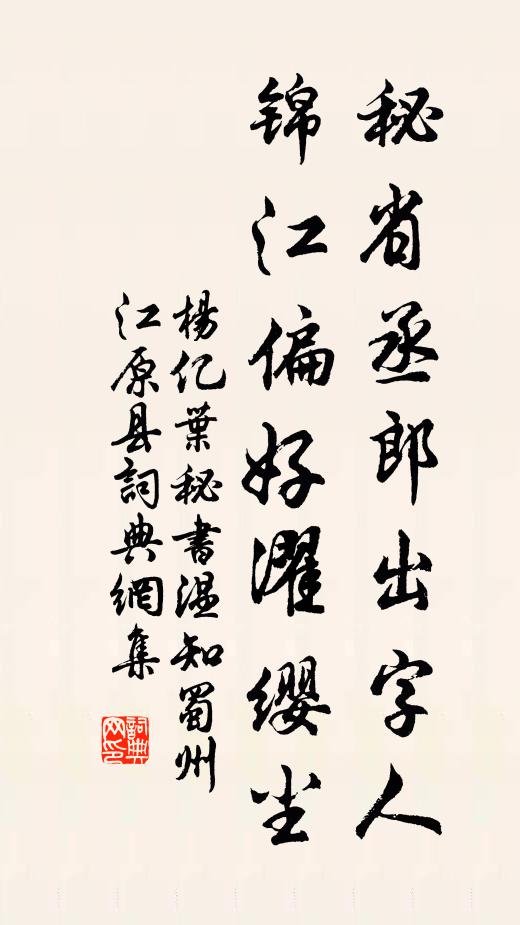 秘省丞郎出字人
锦江偏好濯缨尘
杨亿叶秘书温知蜀州
江原县词典网集
词典网印